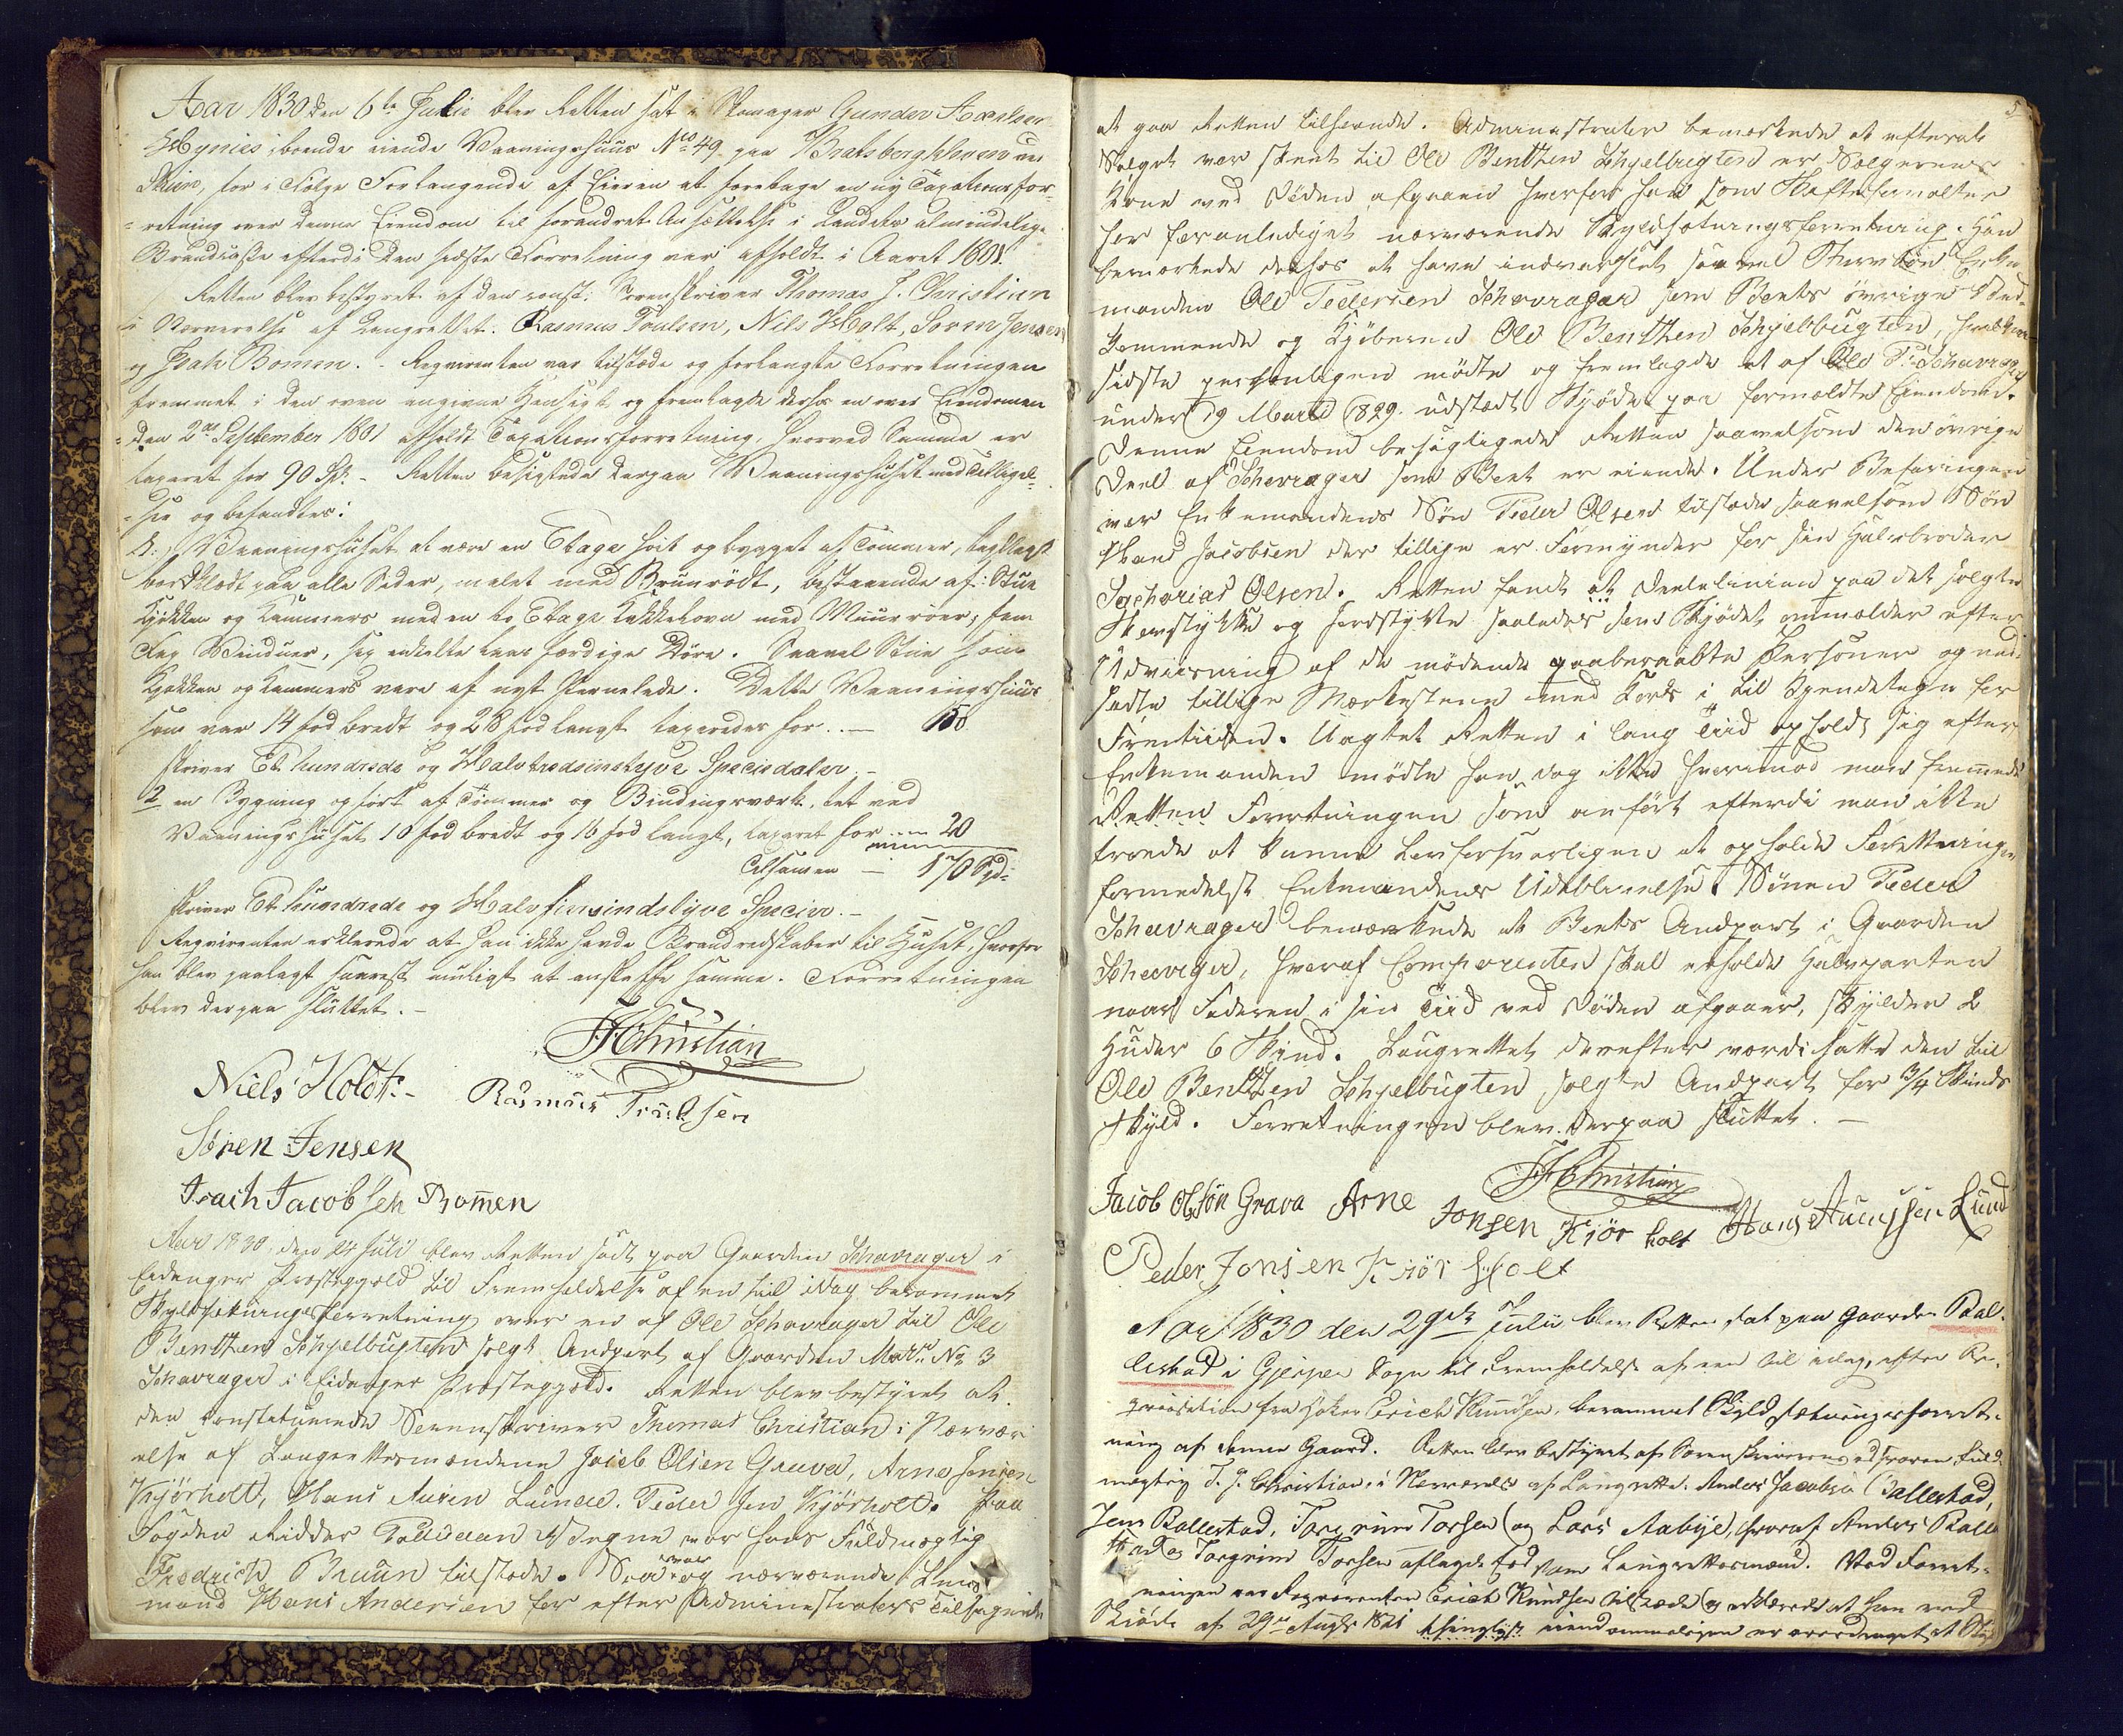 Aar 1830 den 6te Julie blev Retten sat i Skomager Gunder Axelsen
Mynies iboende eiende Vaaningshuus No 49 paa Bratsbergkleven ved
Skien, for i Følge Forlangende af Eieren at foretage en ny Taxationsfor-
=retning over denne Eiendom til forandret Ansættelse i Landets almindelige
Brandcasse efterdi den sidste Forretning var afholdt i Aaret 1801.
Retten blev bestyret af den const: Sorenskriver Thomas J. Christian
i Nærværelse af Laugrettet. Rasmus Poulsen, Nils Holt, Soren Jensen
og Isak Bomen. - Requirenten var tilstæde og forlangte Forretningen
fremmet i den oven angivne Hensigt og fremlagde derhos en over Eiendommen
=den 2de September 1801 afholdt Taxationsforretning, hvorved Samme er
taxeret for 90 Sp: - Retten besigtede derpaa Vaaningshuset med Tilligel=
=ser og befandtes:
1.) Vaaningshuset at være en Etage høit og bygget af Tømmer, tegllagt
bordklædt paa alle Sider, malet med Bruunrødt, bestaaende af: Stue
Kjøkken og Kammers med en to Etage Kakkelovn med Muurrøer, fem
Fag Vinduer, sex enkelte laas færdige Døre. Saavel Stue som
Kjøkken og Kammers vare af nyt Pannelede. Dette Vaaningshuus
som var 14 fod bredt og 28 fod langt taxeredes for .. — 150
skriver Et hundrede og Halvtredsindstyve Speciedaler. -
2 en Bygning opført af Tømmer og Bindingsværk, tet ved
Vaaningshuset 10 fod bredt og 16 fod langt, taxeret for — 20
Tilsamen — 170 Spd:
skriver Et hundrede og Halvfiersindstyve Species. -
Requirenten erklærede at han ikke havde Brandredskaber til Huset, hvorfor
han blev paalagt snarest muligt at anskaffe samme. Forretningen
blev derpaa sluttet. -
JChristian
Niels Holdt:- Rasmus Poulsen
Søren Jensen
Isach Jacobsen Bomen
Aar 1830, den Juli blev Retten sadt paa Gaarden Schavrager i
Eidanger Præstegjeld til Fremholdelse af en til i Dag berammet
Skyldsætnings Forretning over en af Ole Schavrager til Ole
Benthsen Schjelbugten solgt Andpart af Gaarden Matr: No 3
Schavrager i Eidanger Præstegjeld. Retten blev bestyret af
den constituerede Sorenskriver Thomas Christian i Nærvær
else af Laugrettesmændene Jacob Olsen Grava, Arne Jensen
Kjørholt, Hans Auesen Lunde, Peder Jon Kjørholt. Paa
Fogden Ridder Vegne var hans Fuldmægtig
Fredrich Bruun tilstede. Saa var og nærværende Lens
mand Hans Andersen for efter Administrators Tilsigende
5
at gaa Retten tilhaande. Administrator bemærkede at efterat
Salget var skeet til Ole Benthsen Schjelbugten er Sælgerens
Kone ved Døden afgaaen hvorfor han som Skifteforvalter
har foranlediget nærværende Skyldsætningsforretning. Han
bemærkede derhos at have indvarslet saavel Enke
manden Ole Pedersen Schavrager som Boets øvrige Ved-
kommende og Kjøberen Ole Benthsen Schjelbugten, hvilken
sidste personligen mødte og fremlagde et af Ole P. Schavrager
under 19 Marti 1829 udstædt Skjøde paa formeldte Eiendom.
Denne Eiendom besigtigede Retten saavelsom den øvrige
Deel af Schavrager som Boet er eiende. Under Befaringen
var Enkemandens Søn Peder Olsen tilstæde saavelsom Søn
Hans Jacobsen der tillige er Formynder for sin Halvbroder
Zacharias Olsen. Retten fandt at Deelelinien paa det solgte
og Jordstykke saaledes som Skjødet ommelder efter
Udviisning af de mødende paaberaabte Personer og ned-
satte tillige Mærkesteene med Kors i til Kjendetegn for
Fremtiden. Uagtet Retten i lang Tiid opholdt sig efter
Enkemanden mødte han dog ikke hvorimod man fremmede
Retten Forretningen som anført efterdi man ikke
troede at kunne forsvarligen at opholde Forretningen
formedelst Enkemandens Udeblivelse. Sønnen Peder
Schavrager bemærkede at Boets Andpart i Gaarden
Schavrager, hvoraf Comparenten skal erholde Halvparten
naar Faderen i sin Tiid ved Døden afgaaer, skylder 2
Huder 6 Skind. Laugrettet derefter værdisatte den til
Ole Benthsen Schjelbugten solgte Andpart for 3/4 Skinds
Skyld. Forretningen blev derpaa sluttet. —
JChristian
Jacob Olsøn Grava Arne Jonsen Kjør holt Hans Auensen Lund
Peder Jonsen Kjør holt
Aar 1830 den 29de Julii blev Retten sat paa Gaarden Bal-
lestad i Gjerpen Sogn til Fremholdelse af een til idag, efter Re-
qvisition fra Erich Knudsen, berammet Skyldsætningsforret-
ning af denne Gaard. Retten blev bestyret af Sorenskriverens edsvoren Fuld-
mægtig T. J. Christian, i Nærværelse af Laugrette: Anders Jacobsen Ballestad,
Jens Ballestad, Torgrim Torsen og Lars Aabye, hvoraf Anders Balle
stad og Torgrim Torsen aflagde Eed som Laugrettesmænd. Ved Forret-
ningen var Reqvirenten Erich Knudsen tilstæde og erklærede at han ved
Skiøde af 29de Augt: 1821 thinglyst eiendommeligen er overdraget